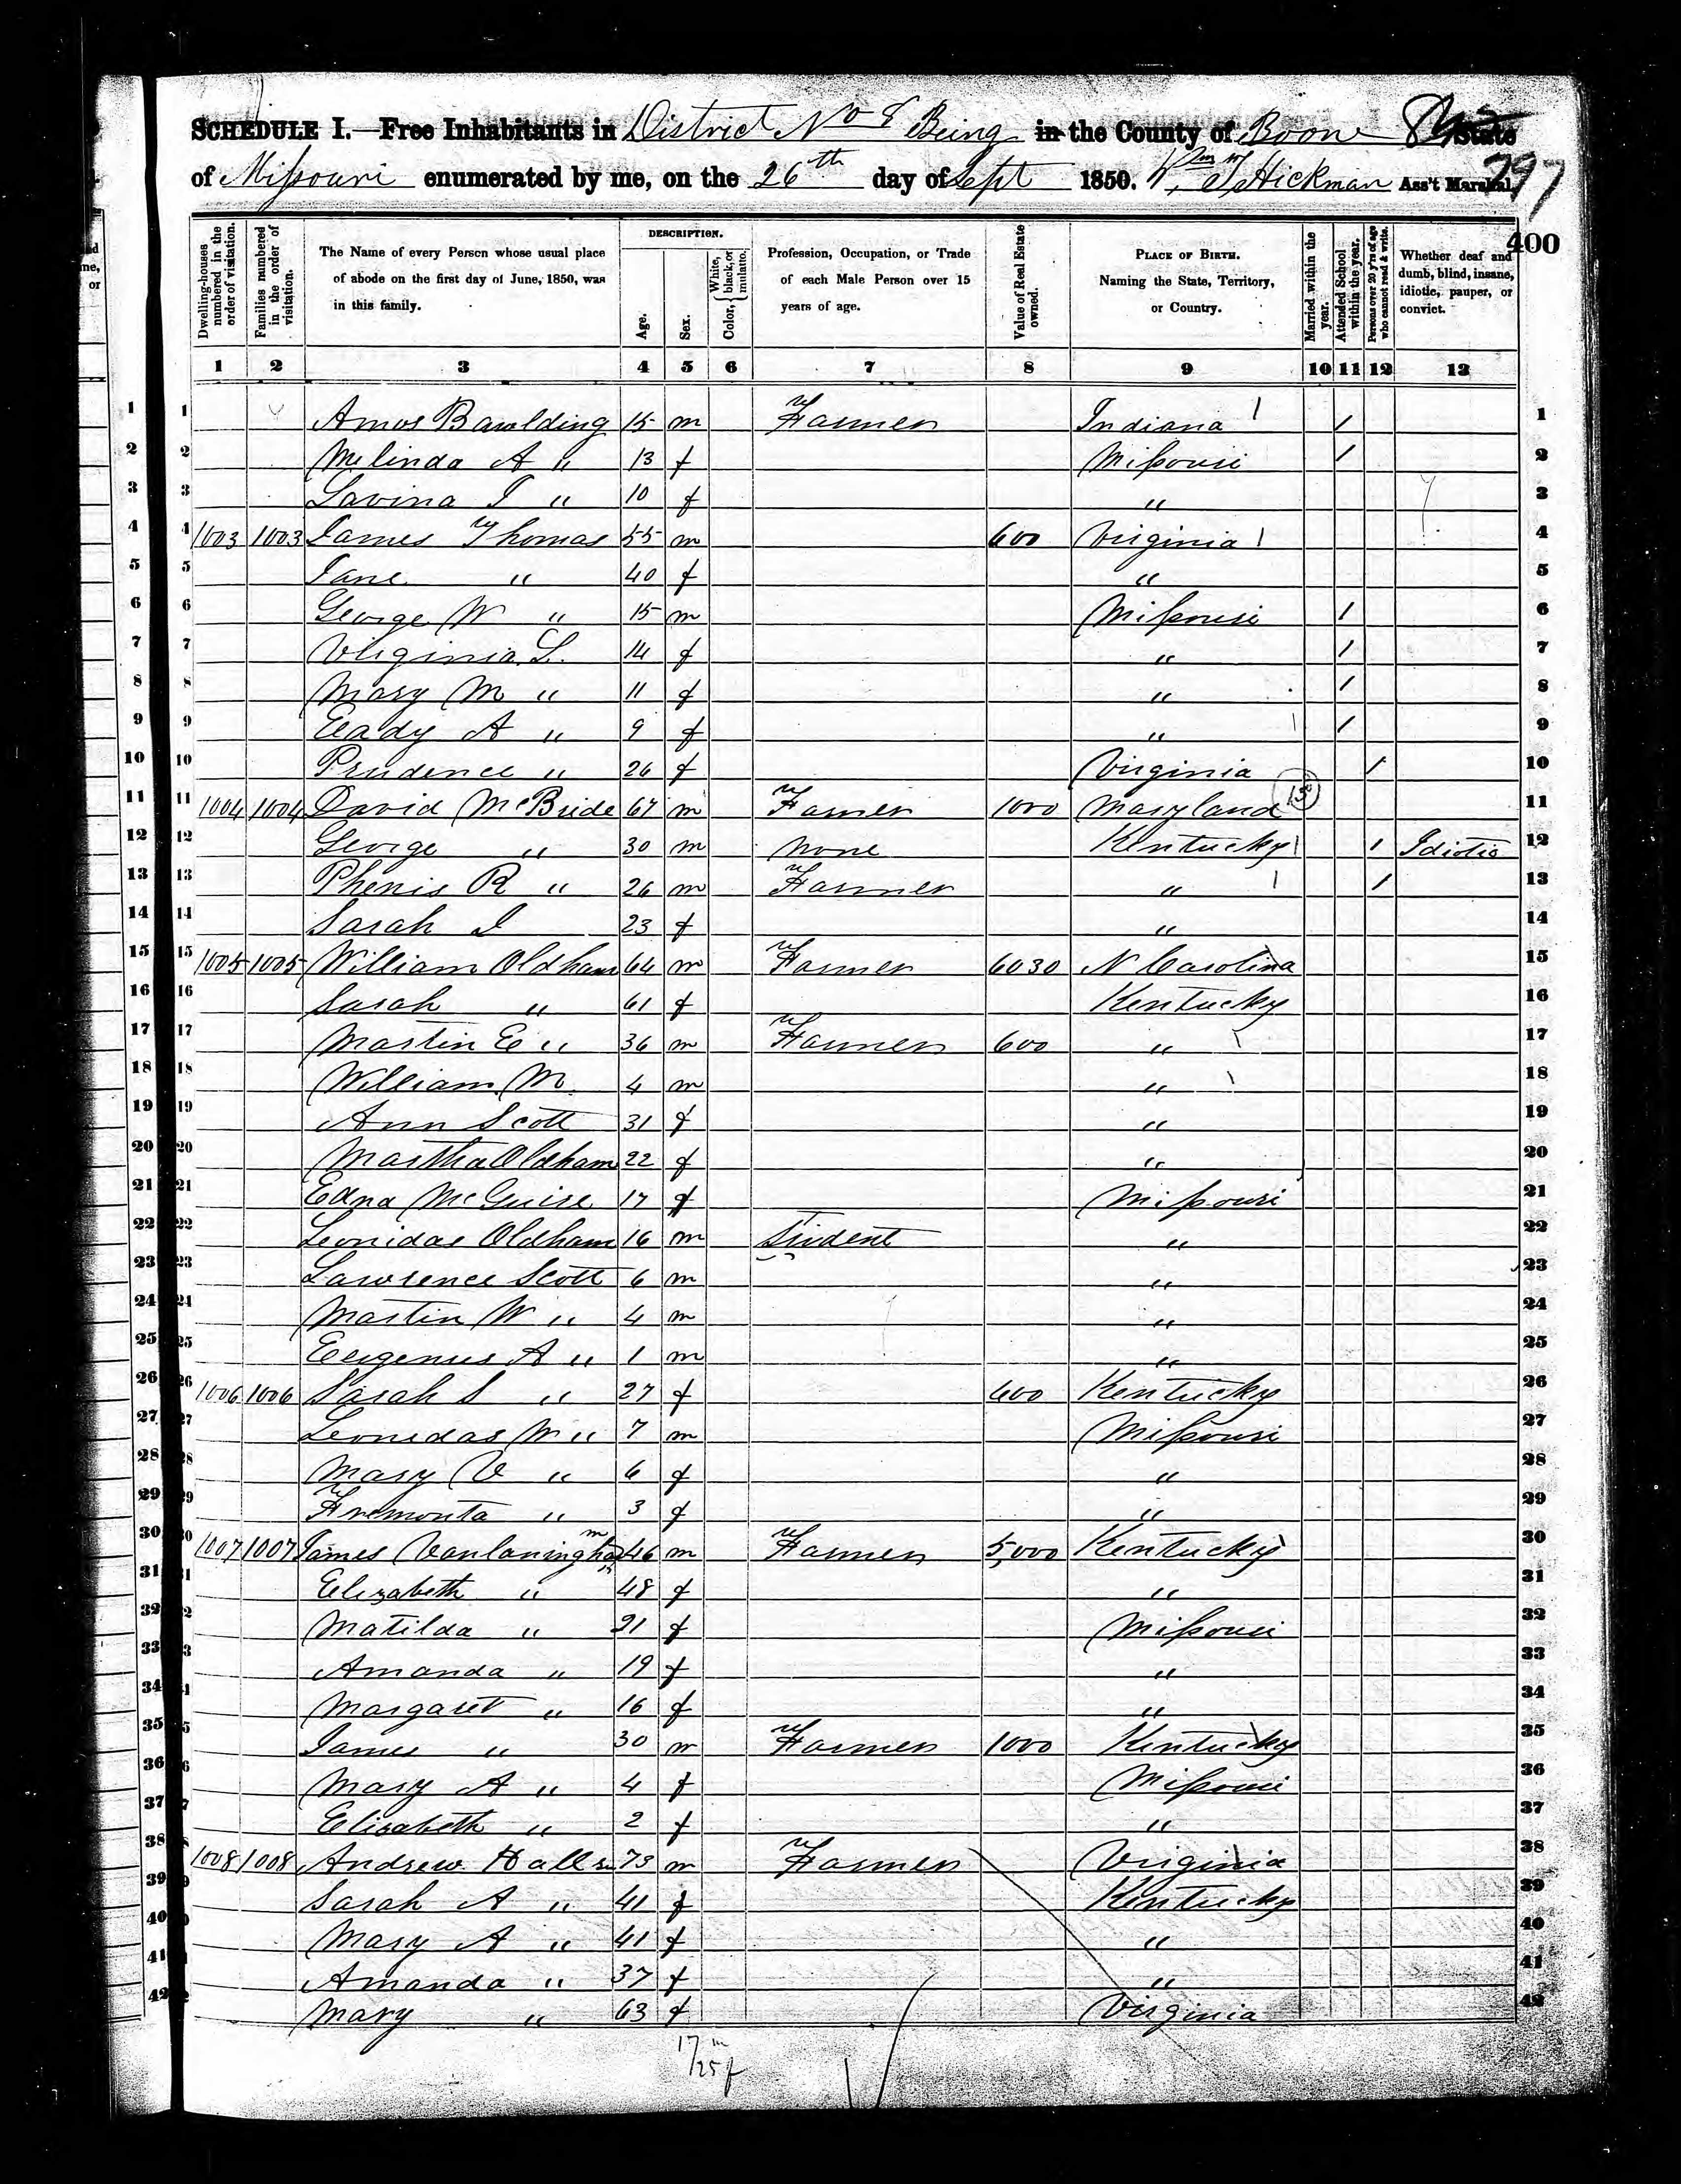 SCHEDULE I.—Free Inhabitants in District No 8 Being in the County of Boone State
of Missouri enumerated by me, on the 26th day of Sept 1850. Wm T Hickman Ass't Marshal.
297
400
Dwelling-houses numbered in the order of visitation.
Families numbered in the order of visitation.
The Name of every Person whose usual place of abode on the first day of June, 1850, was in this family.
DESCRIPTION.
Age.
Sex.
Color, { White, black, or mulatto.
Profession, Occupation, or Trade of each Male Person over 15 years of age.
Value of Real Estate owned.
PLACE OF BIRTH. Naming the State, Territory, or Country.
Married within the year.
Attended School within the year.
Persons over 20 y'rs of age who cannot read & write.
Whether deaf and dumb, blind, insane, idiotic, pauper, or convict.
1 2 3 4 5 6 7 8 9 10 11 12 13
1 Amos Bawlding 15 m Farmer Indiana / 1
2 Melinda A " 13 f Missouri / 2
3 Lavina J " 10 f " 3
4 1003 1003 James Thomas 55 m 600 Virginia 4
5 Jane " 40 f " 5
6 George W " 15 m Missouri / 6
7 Virginia L. 14 f " / 7
8 Mary M " 11 f " / 8
9 Eady A " 9 f " / 9
10 Prudence " 26 f Virginia / 10
11 1004 1004 David McBride 67 m Farmer 1000 Maryland 11
12 George " 30 m None Kentucky / Idiotic 12
13 Phenis R " 26 m Farmer " / 13
14 Sarah J 23 f " 14
15 1005 1005 William Oldham 64 m Farmer 6030 N Carolina 15
16 Sarah " 61 f Kentucky 16
17 Martin E " 36 m Farmer 600 " 17
18 William M. 4 m " 18
19 Ann Scott 31 f " 19
20 Martha Oldham 22 f " 20
21 Edna McGuire 17 f Missouri 21
22 Leonidas Oldham 16 m Student " 22
23 Lawrence Scott 6 m " 23
24 Martin W " 4 m " 24
25 Eugenus A " 1 m " 25
26 1006 1006 Sarah S " 27 f 600 Kentucky 26
27 Leonidas W " 7 m Missouri 27
28 Mary V " 6 f " 28
29 Fremonta " 3 f " 29
30 1007 1007 James Vanlaningham 46 m Farmer 5,000 Kentucky 30
31 Elizabeth " 48 f " 31
32 Matilda " 21 f Missouri 32
33 Amanda " 19 f " 33
34 Margaret " 16 f " 34
35 James " 30 m Farmer 1000 Kentucky 35
36 Mary A " 4 f Missouri 36
37 Elizabeth " 2 f " 37
38 1008 1008 Andrew Hall sr 73 m Farmer Virginia 38
39 Sarah A " 41 f Kentucky 39
40 Mary A " 41 f " 40
41 Amanda " 37 f " 41
42 Mary " 63 f Virginia 42
17 m
/25 f